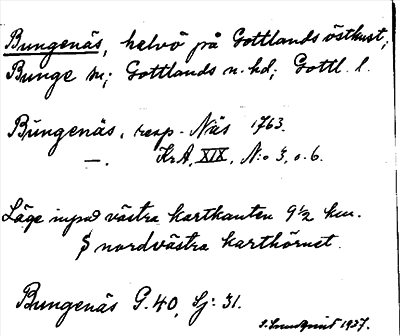 Bungenäs, halvö på Gottlands östkust;
Bunge sn; Gottlands n. hd; Gottl. l.
Bungenäs, resp. Näs 1763.
—. Kr.A, XIX, N:o 3, o. 6.
Läge invid västra kartkanten 9 1/2 km.
S nordvästra karthörnet.
Bungenäs G. 40, Sj: 31.
1927.